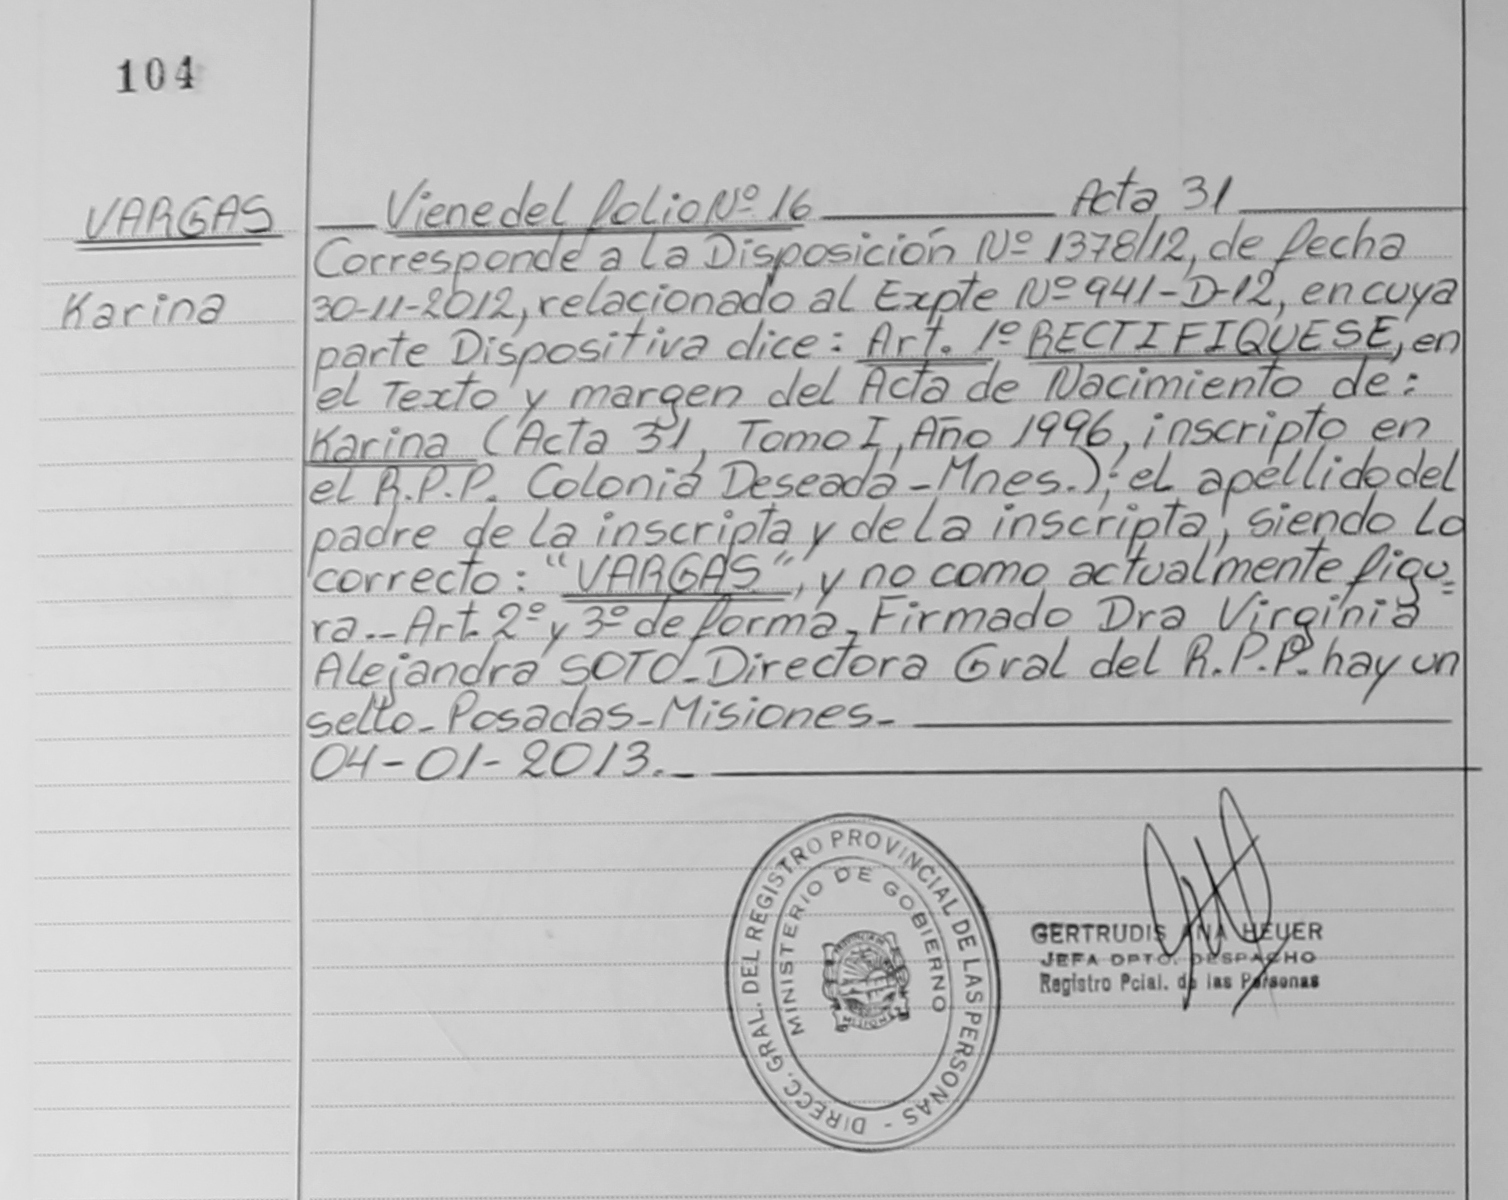 104
VARGAS
Karina
Viene del folio Nº 16 Acta 31
Corresponde a la Disposición Nº 1378/12, de fecha
30-11-2012, relacionado al Expte Nº 941-D-12, en cuya
parte Dispositiva dice: Art. 1º RECTIFIQUESE, en
el Texto y margen del Acta de Nacimiento de:
Karina (Acta 31, Tomo I, Año 1996, inscripto en
el R.P.P. Colonia Deseada-Mnes.); el apellido del
padre de la inscripta y de la inscripta, siendo lo
correcto: "VARGAS", y no como actualmente figu-
ra.- Art. 2º y 3º de forma, Firmado Dra Virginia
Alejandra SOTO-Directora Gral del R.P.P. hay un
sello-Posadas-Misiones-
04-01-2013.-
DIRECC. GRAL. DEL REGISTRO PROVINCIAL DE LAS PERSONAS -
MINISTERIO DE GOBIERNO
GERTRUDIS ANA HEUER
JEFA DPTO. DESPACHO
Registro Pcial. de las Personas